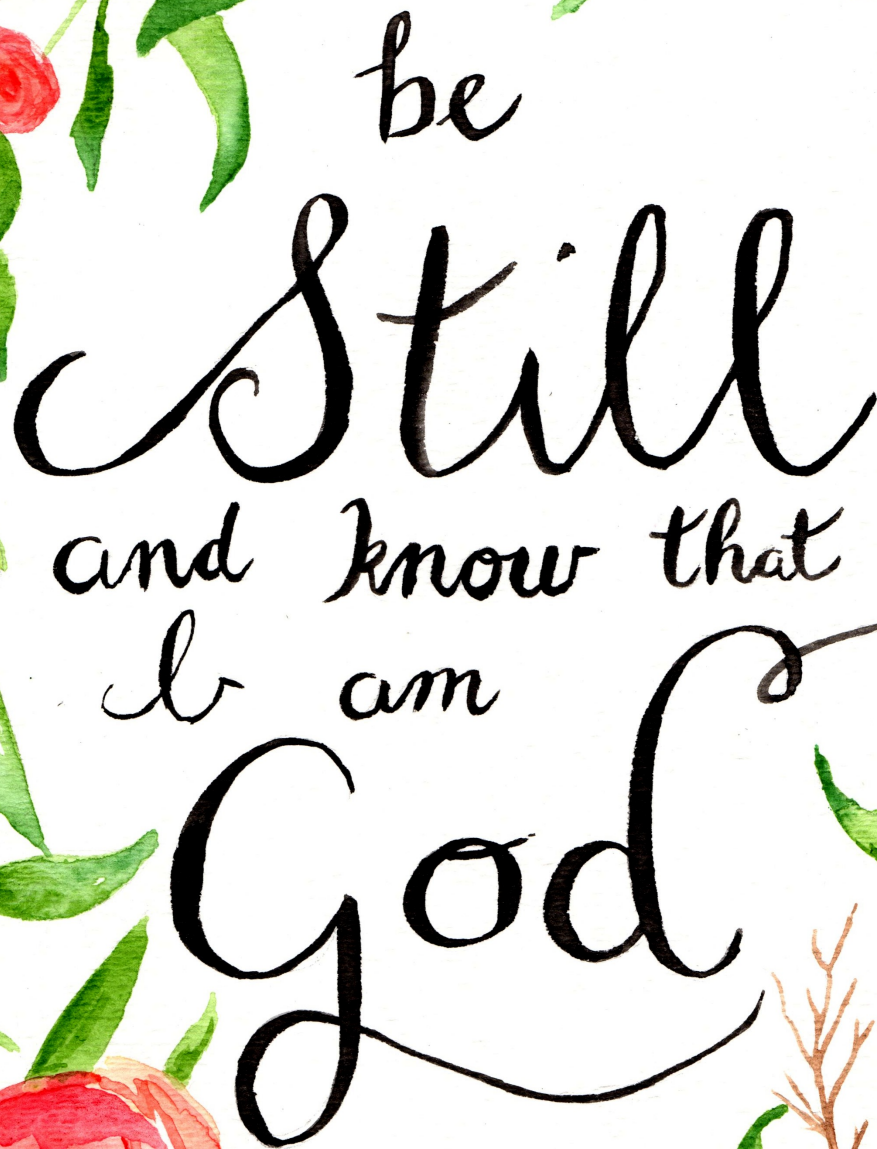 be
Still
and know that
I am
God